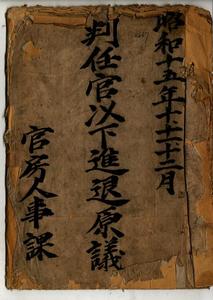 昭和十五年十、十一、十二月
判任官以下進退原議
官房人事課